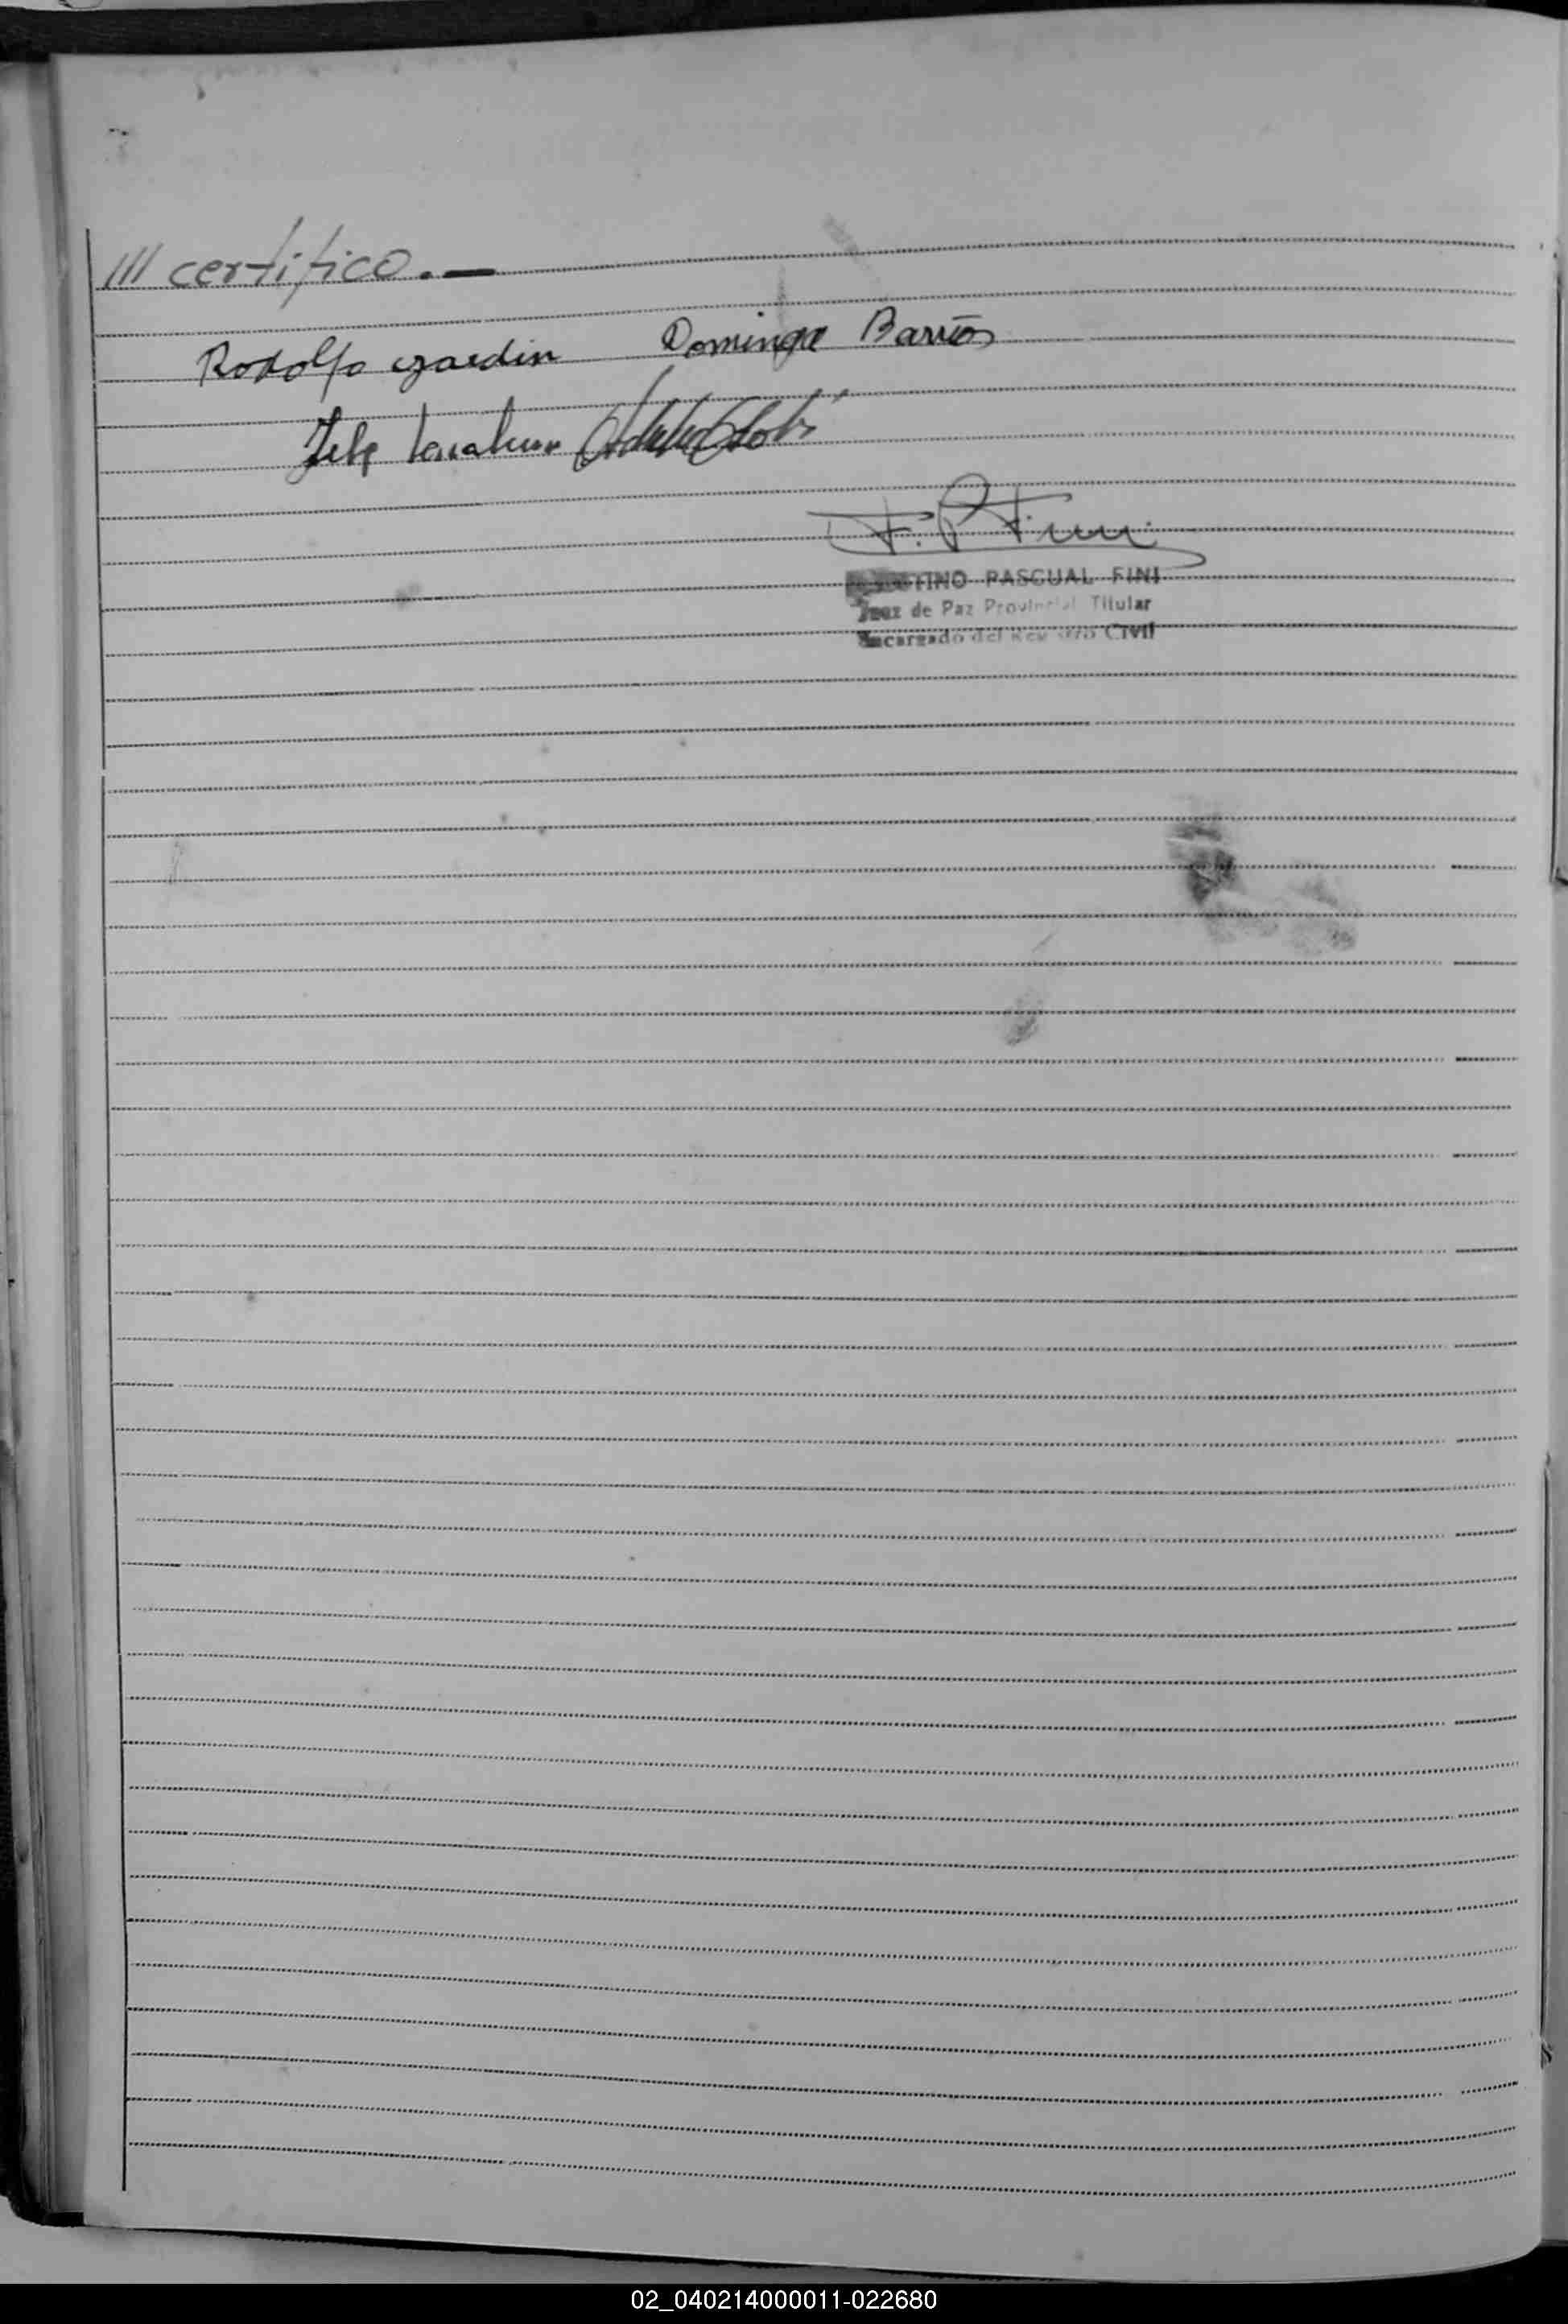 /// certifico. —
Rodolfo Dominga Barrios
F. P. Fini
PASCUAL FINI
Juez de Paz Provincial Titular
Encargado del Registro Civil
02_040214000011-022680